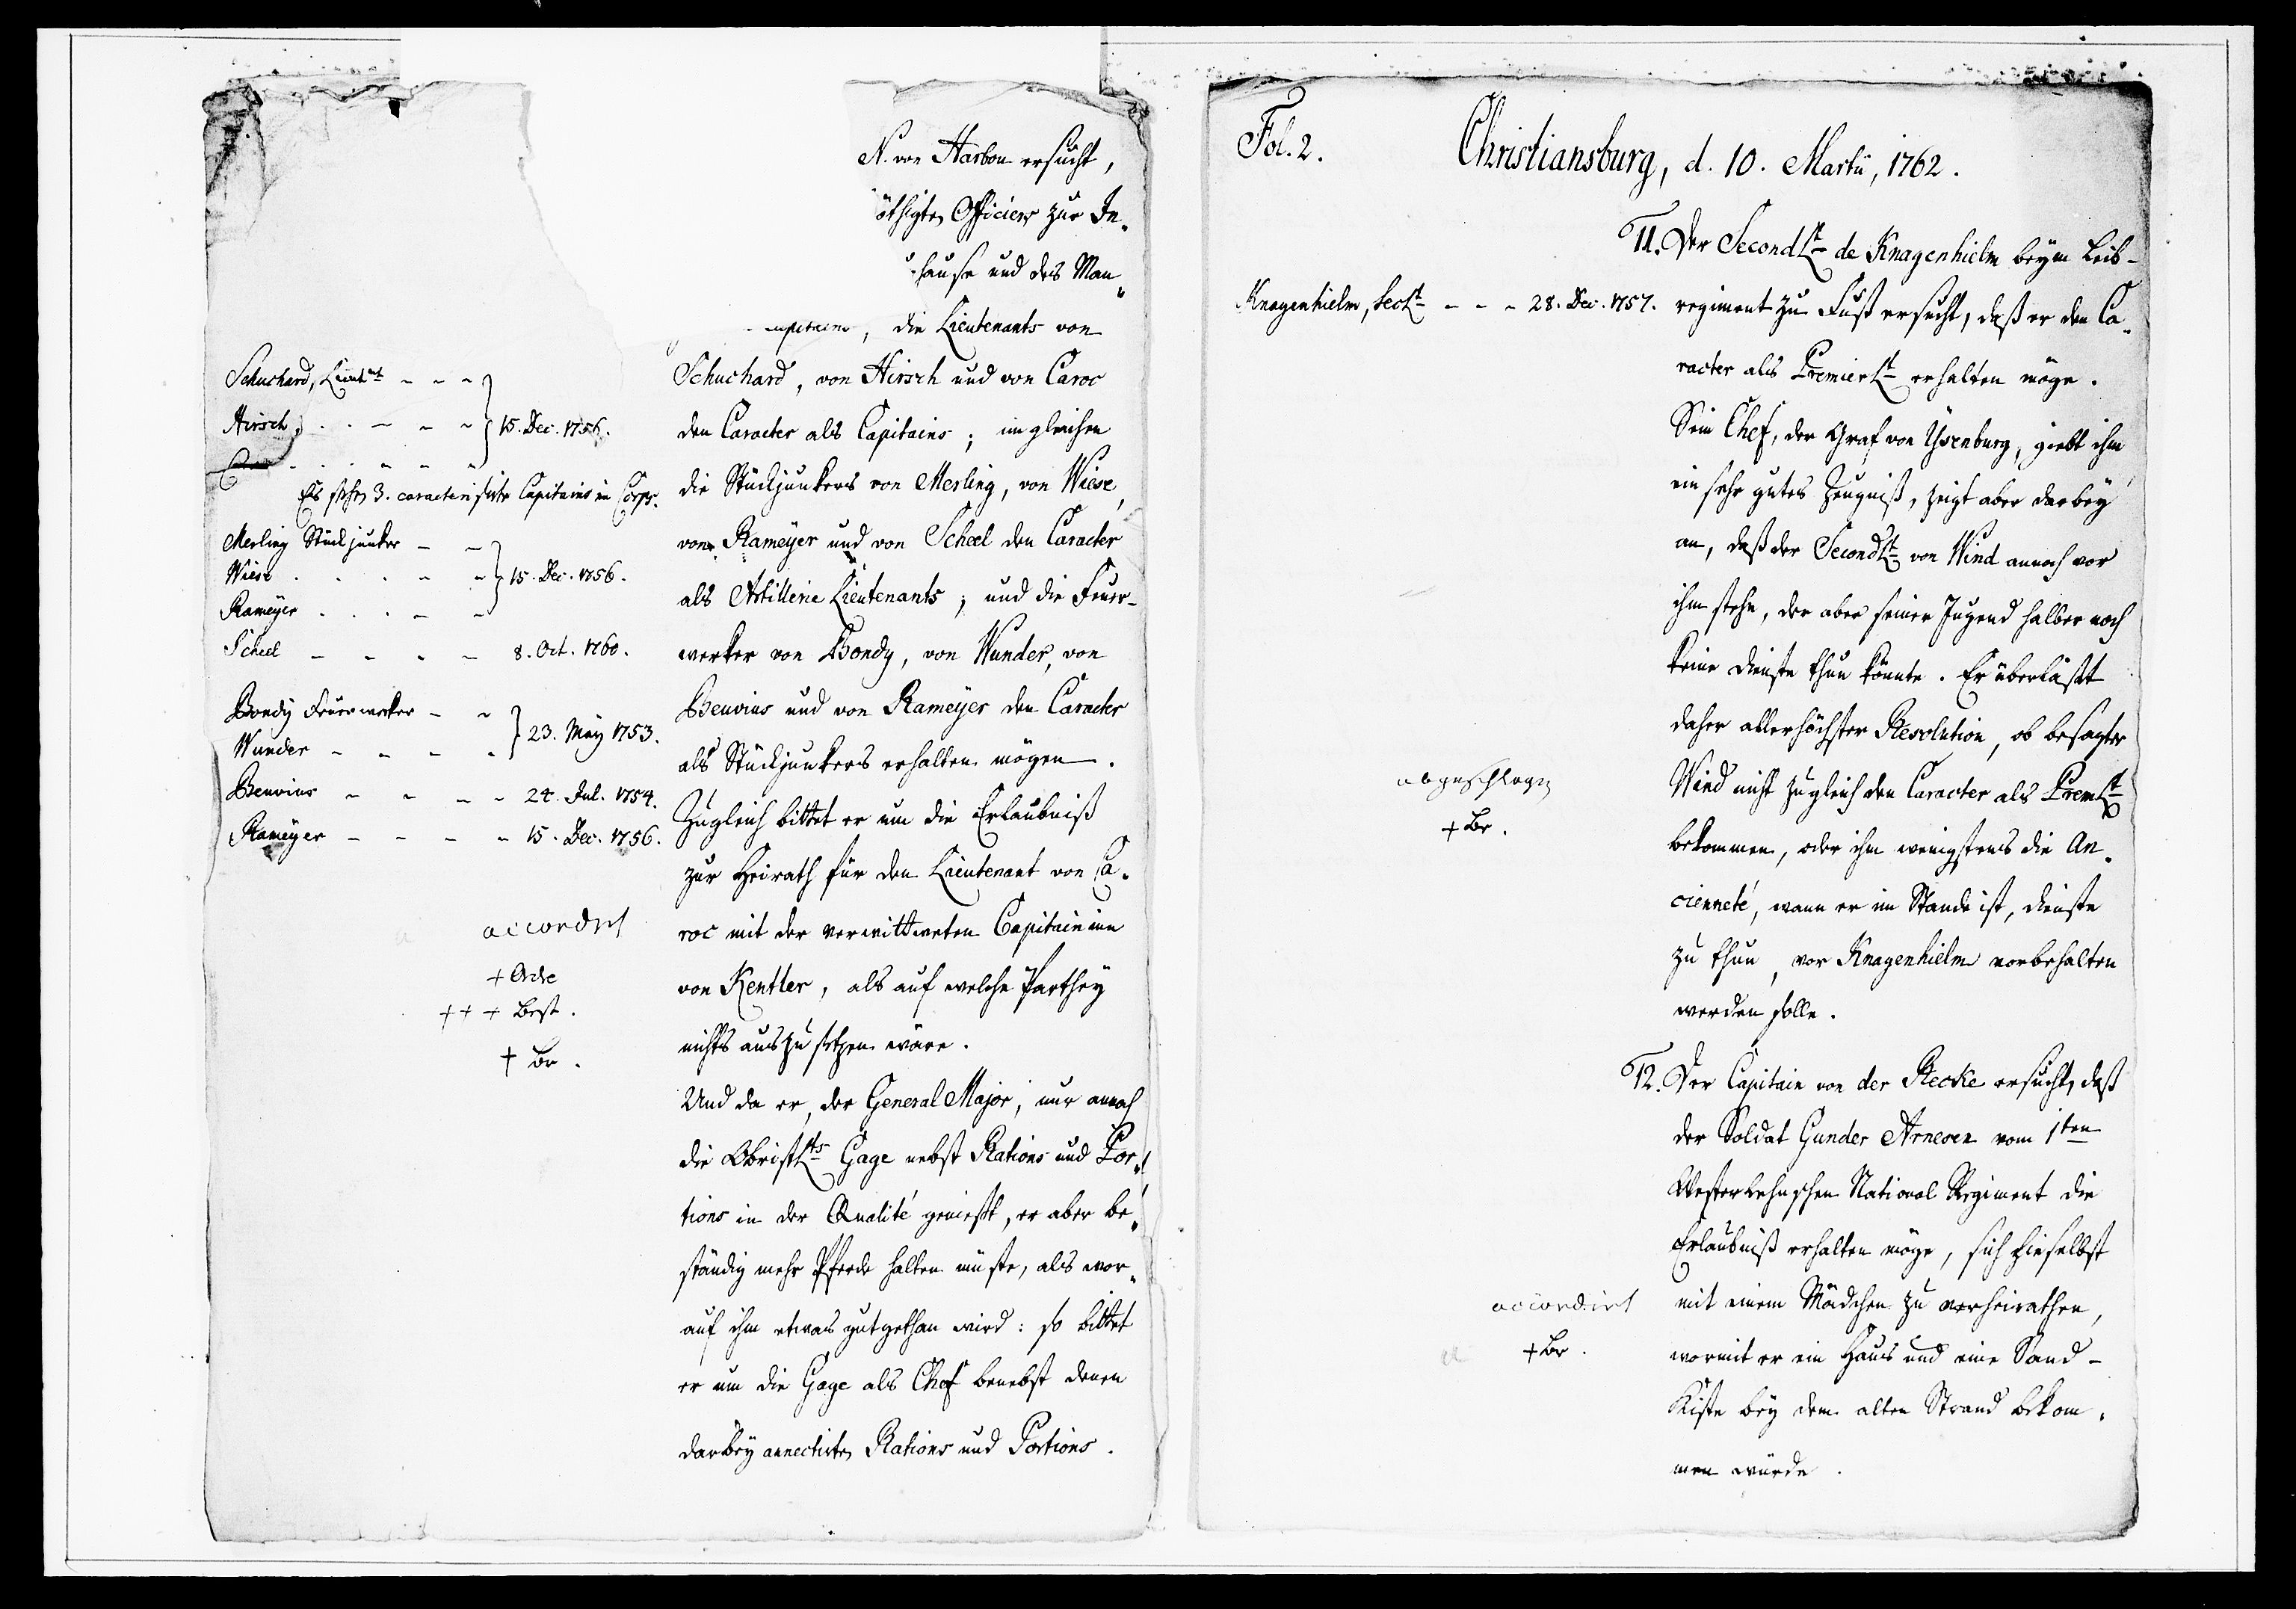 N. von Harbou ersucht,
öthigten Officiers zur In-
hause und des Man-
die Lieutenants von
Schuchard, von Hirsch und von Caroc
den Caracter als Capitains; imgleichen
die Stückjunkers von Merling, von Wiese,
von Rameyer und von Scheel den Caracter
als Artillerie Lieutenants; und die Feuer-
werker von Bondy, von Wunder, von
Beuvius und von Rameyer den Caracter
als Stückjunkers erhalten mögen.
Zugleich bittet er um die Erlaubniß
zur Heirath für den Lieutenant von Ca-
roc mit der verwittweten Capitainin
von Kentler, als auf welche Parthey
nichts auszusetzen wäre.
Und da er, der General Major, nur annoch
die ObristLts Gage nebst Rations und Por-
tions in der Qualité genießt, er aber be-
ständig mehr Pferde halten müste, als wor-
auf ihm etwas gutgethan wird: so bittet
er um die Gage als Chef benebst denen
darbey annectirten Rations und Portions.
Schuchard, Lieutnt - - -
Hirsch, . . - - - } 15. Dec. 1756.
Es stehen 3. caracterisirte Capitains im Corps.
Merling Stückjunker - -
Wiese . . . - - } 15. Dec. 1756.
Rameyer . . . - -
Scheel - - - - 8. Oct. 1760.
Bondy Feuerwerker - -
Wunder - - - - } 23. May 1753.
Beuvius - - - - 24. Jul. 1754.
Rameyer - - - - 15. Dec. 1756.
accordirt
+ Orde
+++ Best.
+ Br.
Fol. 2.
Christiansburg, d. 10. Martii, 1762.
11. Der SecondLt de Knagenhielm beym Leib-
regiment zu Fuß ersucht, daß er den Ca-
racter als PremierLt erhalten möge.
Sein Chef, der Graf von Ysenburg, giebt ihm
ein sehr gutes Zeugniß, zeigt aber darbey
an, daß der SecondLt von Wind annoch vor
ihm stehe, der aber seiner Jugend halber noch
keine Dienste thun könnte. Er überläßt
daher allerhöchster Resolution, ob besagter
Wind nicht zugleich den Caracter als PremLt
bekommen, oder ihm wenigstens die An-
cienneté, wann er im Stande ist, Dienste
zu thun, vor Knagenhielm vorbehalten
werden solle.
Knagenhielm, SecLt - - - 28. Dec. 1757.
abgeschlagen
+ Br.
12. Der Capitain von der Recke ersucht, daß
der Soldat Gunder Arnesen vom 1ten
Westerlehnschen National Regiment die
Erlaubniß erhalten möge, sich hieselbst
mit einem Mädchen zu verheirathen,
wormit er ein Haus und eine Sand-
Kiste bey dem alten Strand bekom-
men würde.
accordirt
+ Br.